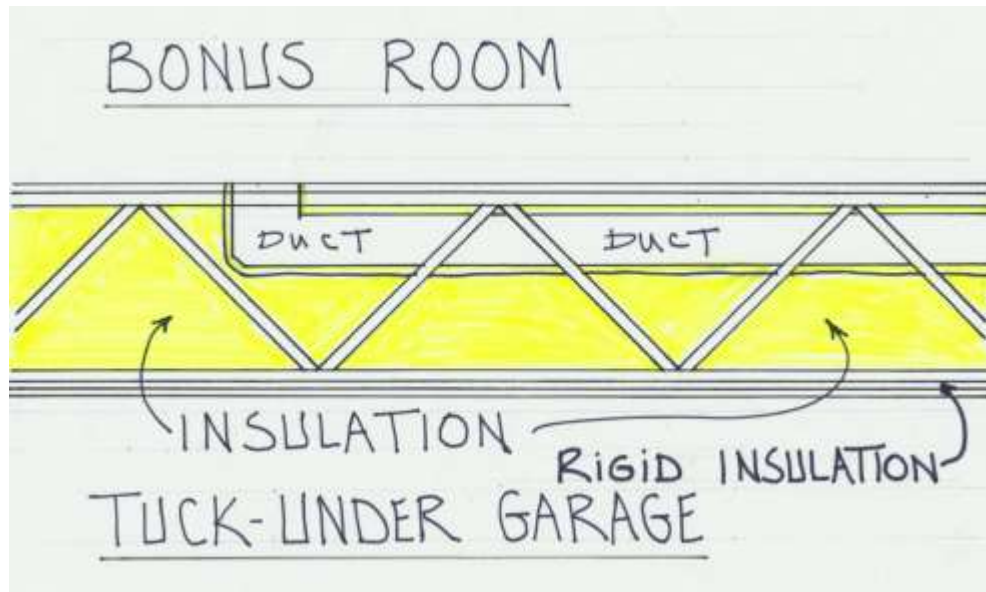 BONUS ROOM
DUCT DUCT
INSULATION
RIGID INSULATION
TUCK-UNDER GARAGE